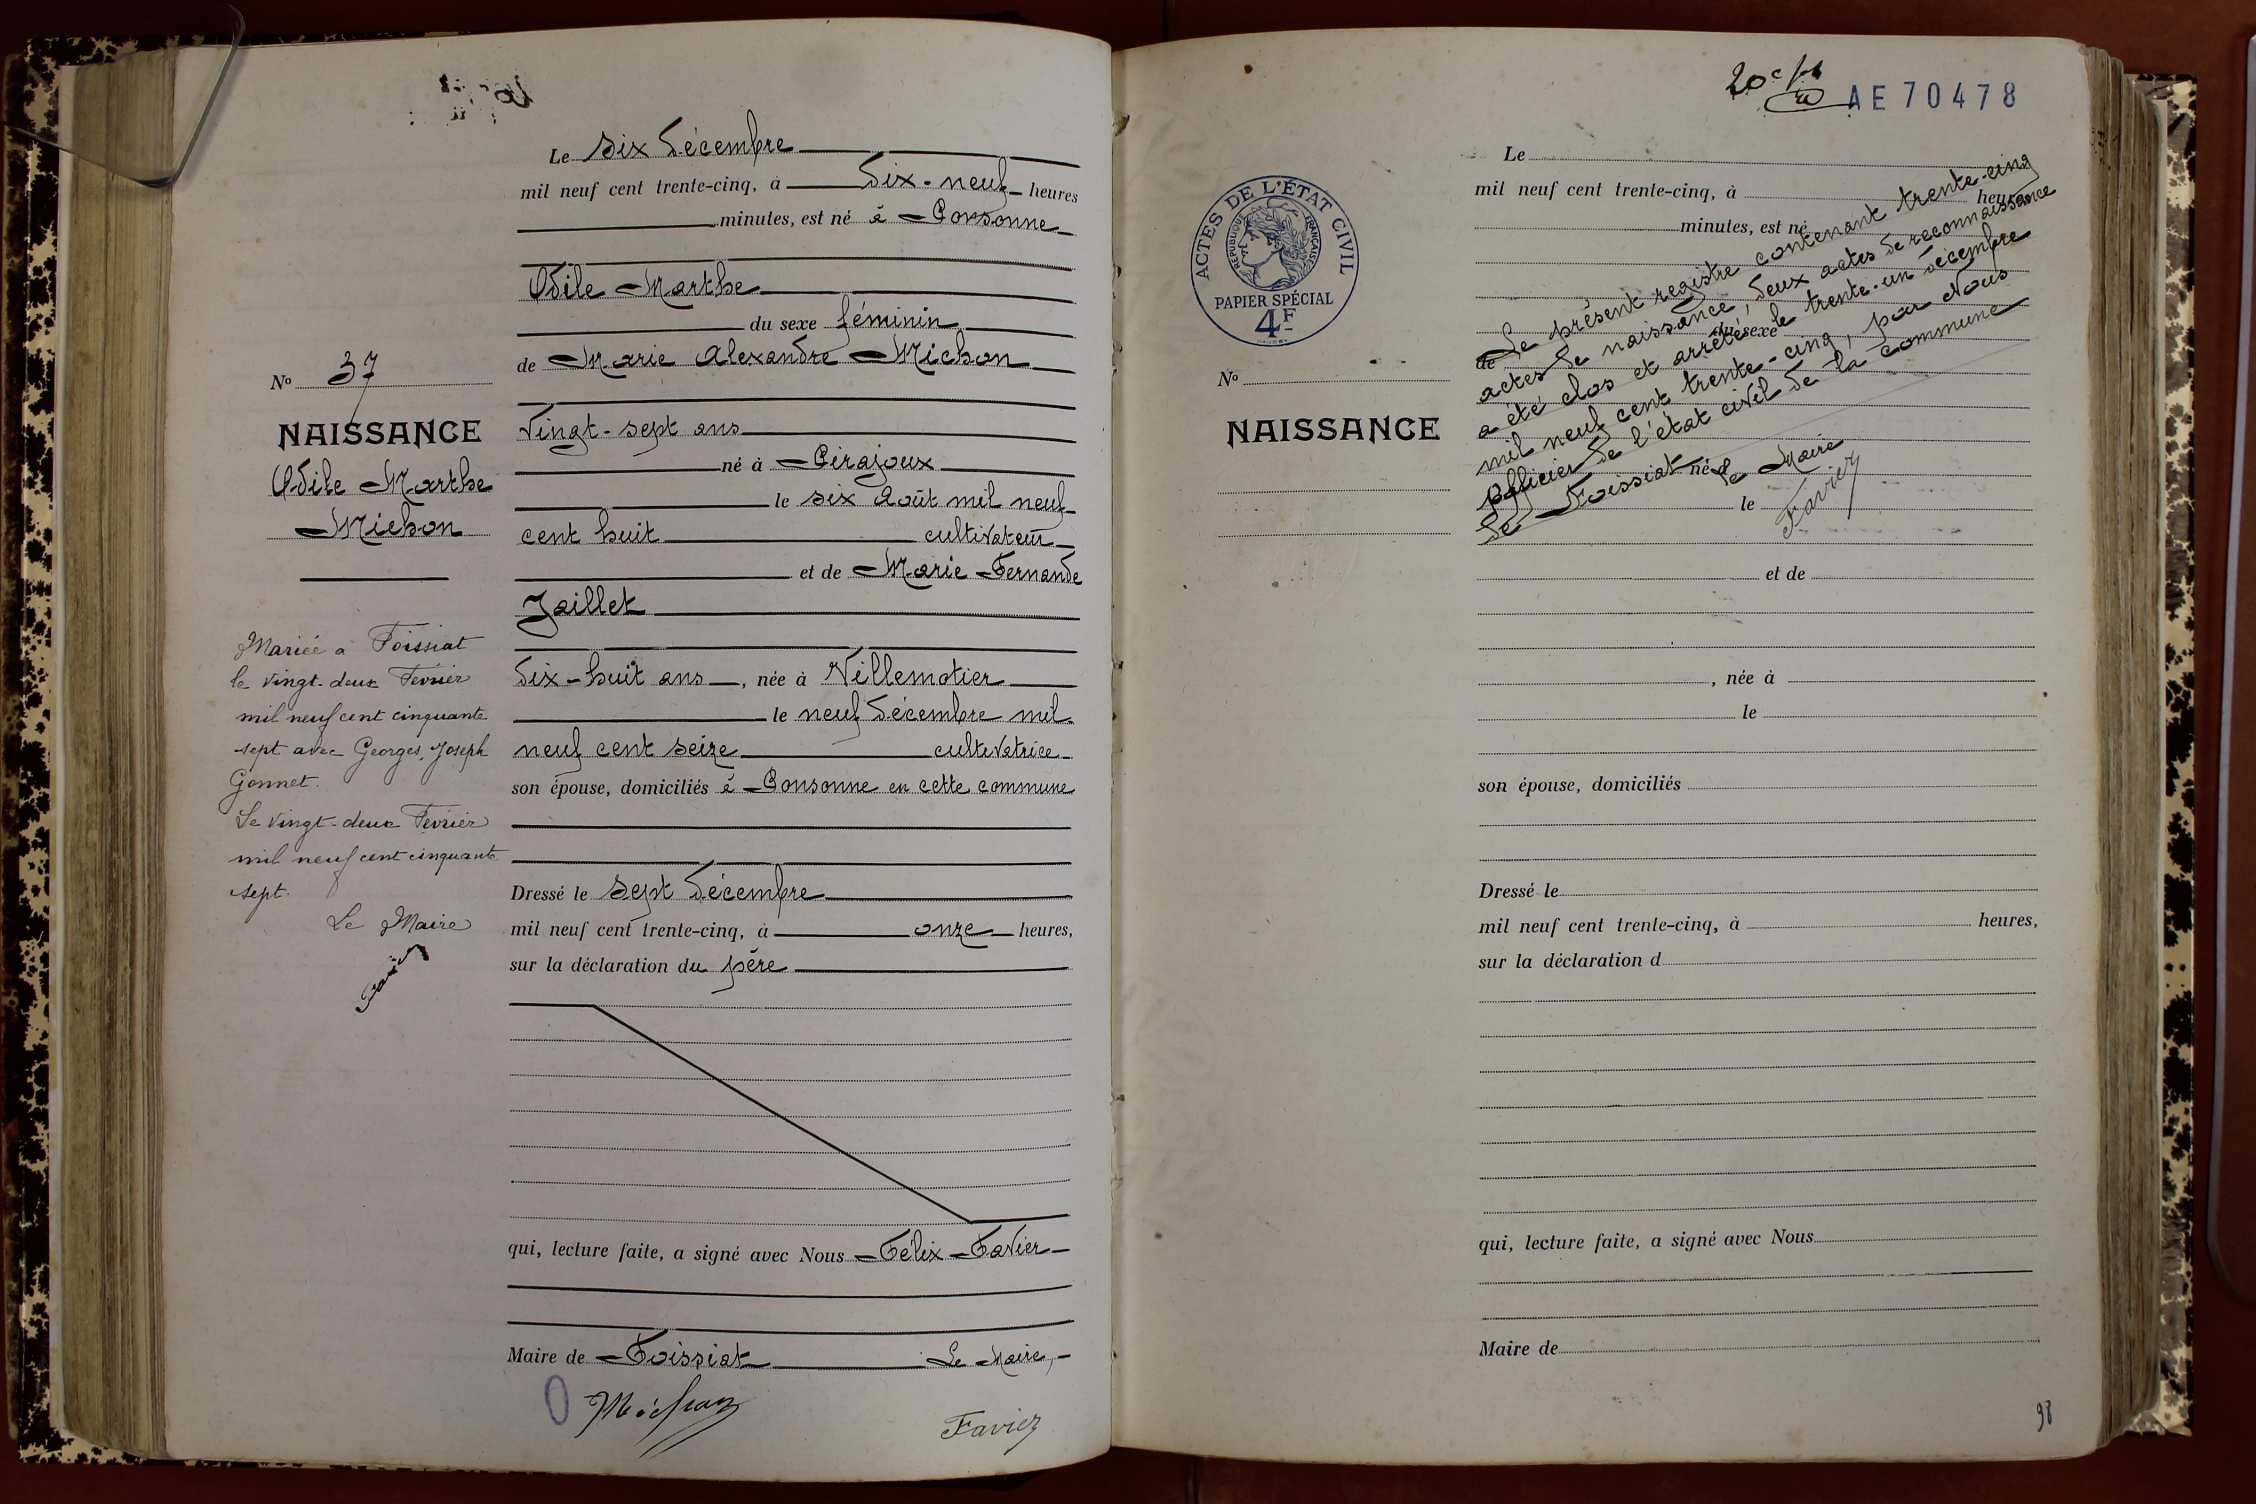 Le six décembre
mil neuf cent trente-cinq, à dix-neuf heures
minutes, est né à Ponsonne
Odile Marthe
du sexe féminin
de Marie Alexandre Michon
No 37
NAISSANCE
Odile Marthe
Michon
vingt-sept ans
né à Pirajoux
le six août mil neuf
cent huit cultivateur
et de Marie Fernande
Jaillet
dix-huit ans, née à Villemotier
le neuf décembre mil
neuf cent seize cultivatrice
son épouse, domiciliés à Ponsonne en cette commune
Mariée à Foissiat
le vingt-deux Février
mil neuf cent cinquante
sept avec Georges, Joseph
Gonnet.
Le vingt-deux Février
mil neuf cent cinquante
sept.
Le Maire
Favier
Dressé le sept décembre
mil neuf cent trente-cinq, à onze heures,
sur la déclaration du père
qui, lecture faite, a signé avec Nous Félix Favier
Maire de Foissiat Le Maire,
Michon
Favier
AE 70478
ACTES DE L'ÉTAT CIVIL
RÉPUBLIQUE FRANÇAISE
PAPIER SPÉCIAL
4F
No
NAISSANCE
Le
mil neuf cent trente-cinq, à heures
minutes, est né
du sexe
de
né à
le
et de
, née à
le
son épouse, domiciliés
Dressé le
mil neuf cent trente-cinq, à heures,
sur la déclaration d
qui, lecture faite, a signé avec Nous
Maire de
Le présent registre contenant trente-cinq
actes de naissance, deux actes de reconnaissance
a été clos et arrêté le trente-un décembre
mil neuf cent trente-cinq, par Nous
officier de l'état civil de la commune
de Foissiat
Le Maire
Favier
98